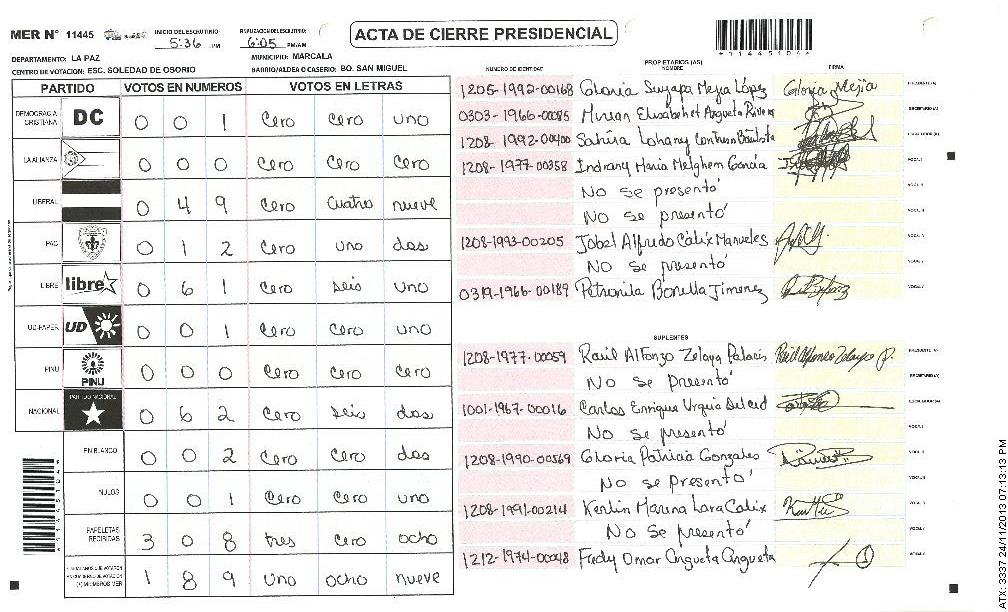 MER N° 11445
INICIO DEL ESCRUTINIO:
5:36 PM
FINALIZACION DEL ESCRUTINIO:
6:05 PM/AM
ACTA DE CIERRE PRESIDENCIAL
11445104
DEPARTAMENTO: LA PAZ
MUNICIPIO: MARCALA
CENTRO DE VOTACION: ESC. SOLEDAD DE OSORIO
BARRIO/ALDEA O CASERIO: BO. SAN MIGUEL
PARTIDO VOTOS EN NUMEROS VOTOS EN LETRAS
DEMOCRACIA CRISTIANA DC 0 0 1 Cero Cero uno
LA ALIANZA 0 0 0 Cero Cero Cero
LIBERAL 0 4 9 Cero Cuatro nueve
PAC 0 1 2 Cero uno dos
LIBRE libre 0 6 1 Cero seis uno
UD-FAPER UD 0 0 1 Cero Cero uno
PINU PINU 0 0 0 Cero Cero Cero
NACIONAL PARTIDO NACIONAL 0 6 2 Cero seis dos
EN BLANCO 0 0 2 Cero Cero dos
NULOS 0 0 1 Cero Cero uno
PAPELETAS RECIBIDAS 3 0 8 tres Cero ocho
(+) MIEMBROS MER 1 8 9 uno ocho nueve
NUMERO DE IDENTIDAD PROPIETARIOS (AS) NOMBRE FIRMA
1205-1992-00168 Gloria Suyapa Mejia López Gloria Mejia PRESIDENTE (A)
0303-1966-00085 Mirian Elisabehet Argueta Rivera SECRETARIO (A)
1208-1992-00400 Sahira Lohany Contreras Bautista ESCRUTADOR (A)
1208-1977-00358 Indrany Maria Melghem García VOCAL I
No se presentó VOCAL II
No se presentó VOCAL III
1208-1993-00205 Jobel Alfredo Cálix Manueles
No se presentó
0319-1966-00189 Petronila Bonilla Jimenez
SUPLENTES
1208-1977-00059 Raúl Alfonzo Zelaya Palacis PRESIDENTE (A)
No se presentó SECRETARIO (A)
1001-1967-00016 Carlos Enrique Urquia Del cid ESCRUTADOR (A)
No se presentó VOCAL I
1208-1990-00569 Gloria Patricia Gonzales VOCAL II
No se presentó
1208-1991-00214 Kenlin Marena Lara Calix
No se presentó
1212-1974-00048 Fredy Omar Argueta Argueta
ATX: 3337 24/11/2013 07:13:13 PM